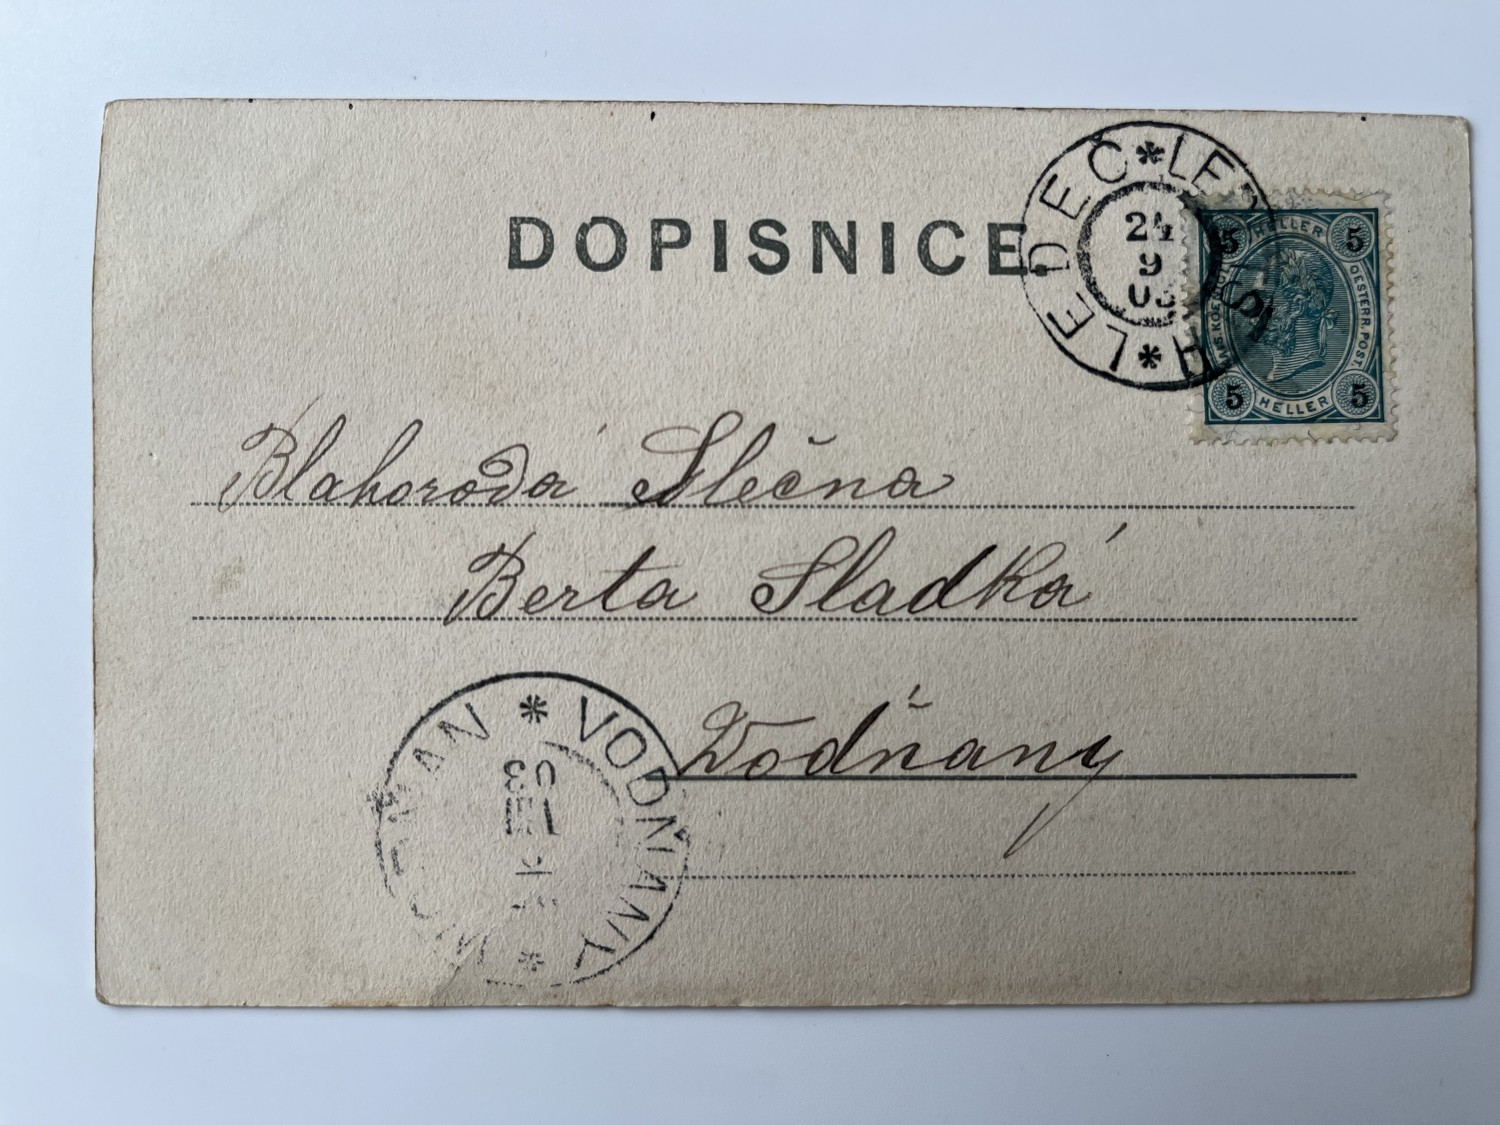 DOPISNICE
LEDEČ * LED
24
9
03
5 HELLER 5
OESTERR. POST.
5 HELLER 5
Blahorodá Slečna
Berta Sladká
Vodňany
* VODŇANY *
03